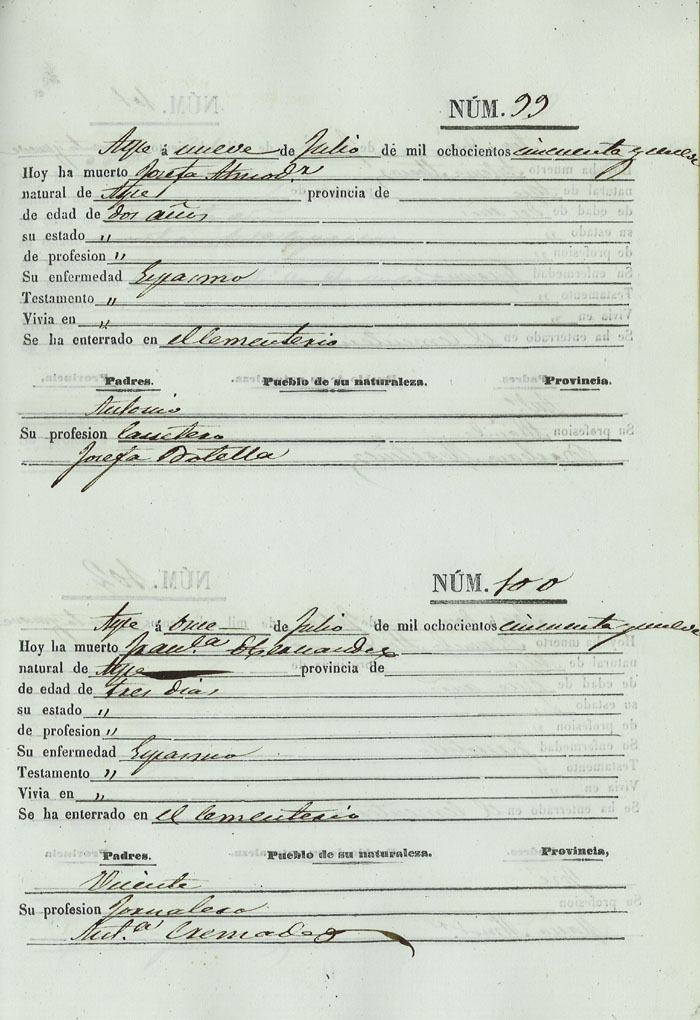 NÚM. 99
Aspe á nueve de Julio de mil ochocientos cincuenta y nueve
Hoy ha muerto Josefa Almodr
natural de Aspe provincia de
de edad de dos años
su estado "
de profesion "
Su enfermedad Espasmo
Testamento "
Vivia en "
Se ha enterrado en el Cementerio
Padres. Pueblo de su naturaleza. Provincia.
Antonio
Su profesion
Josefa Botella
NÚM. 100
Aspe á once de Julio de mil ochocientos cincuenta y nueve
Hoy ha muerto Fran.ca Hernandez
natural de Aspe provincia de
de edad de tres dias
su estado "
de profesion "
Su enfermedad Espasmo
Testamento "
Vivia en "
Se ha enterrado en el Cementerio
Padres. Pueblo de su naturaleza. Provincia,
Vicente
Su profesion Jornalero
Ant.a Cremades